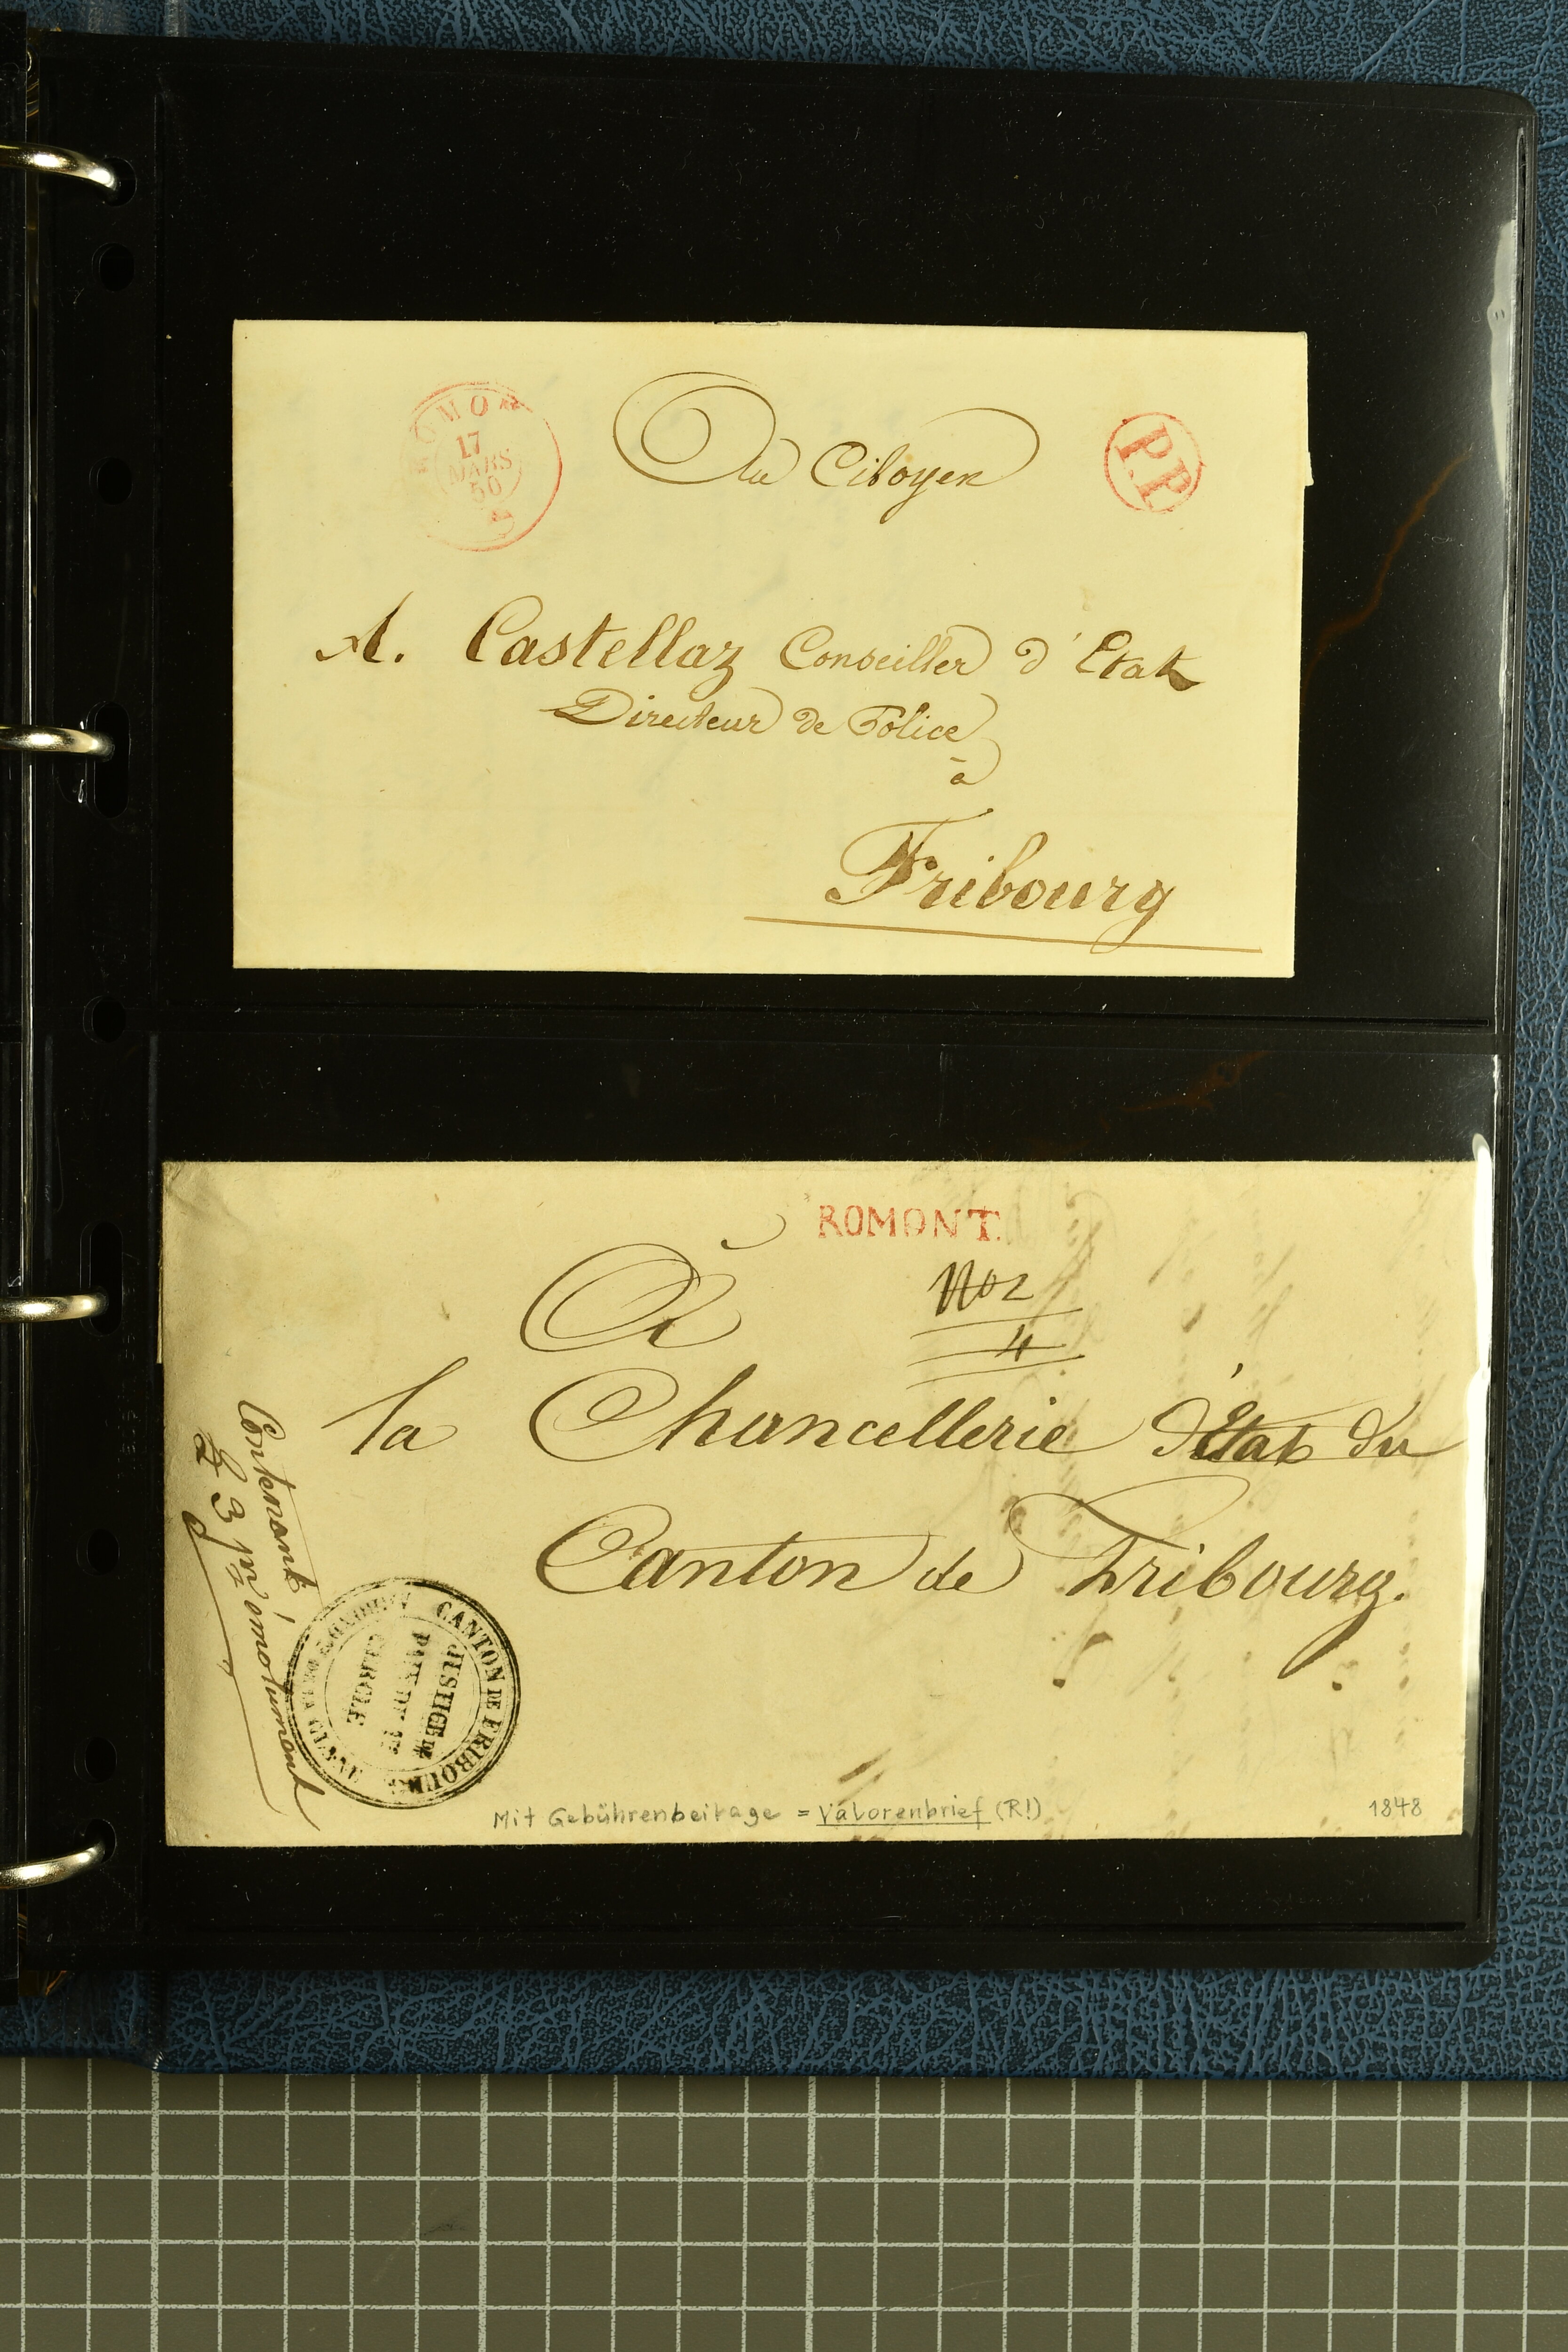 ROMON
17
MARS
50
Au Citoyen
P.P.
A. Castellaz Conseiller d'Etat
Directeur de Police
à
Fribourg
ROMONT.
No 2
4
À
la Chancellerie d'État du
Canton de Fribourg.
Contenant
CANTON DE FRIBOURG
JUSTICE DE
PAIX DU 1er
CERCLE
Mit Gebührenbeilage = Valorenbrief (R!)
1848